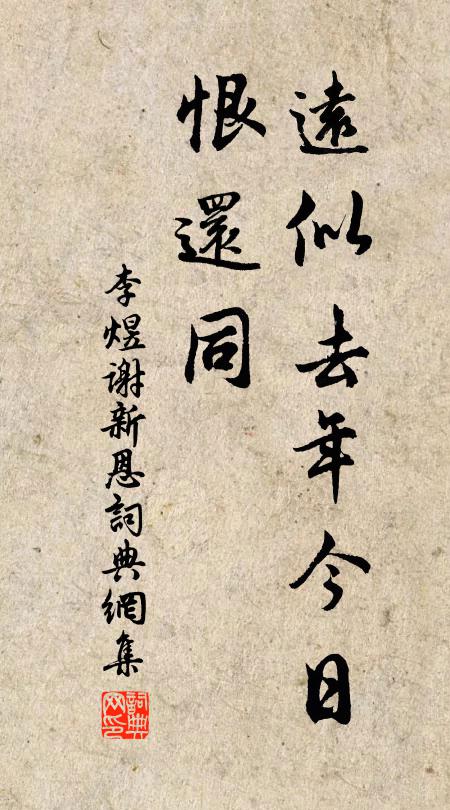 遠似去年今日
恨還同
李煜谢新恩詞典網集
詞典
网印